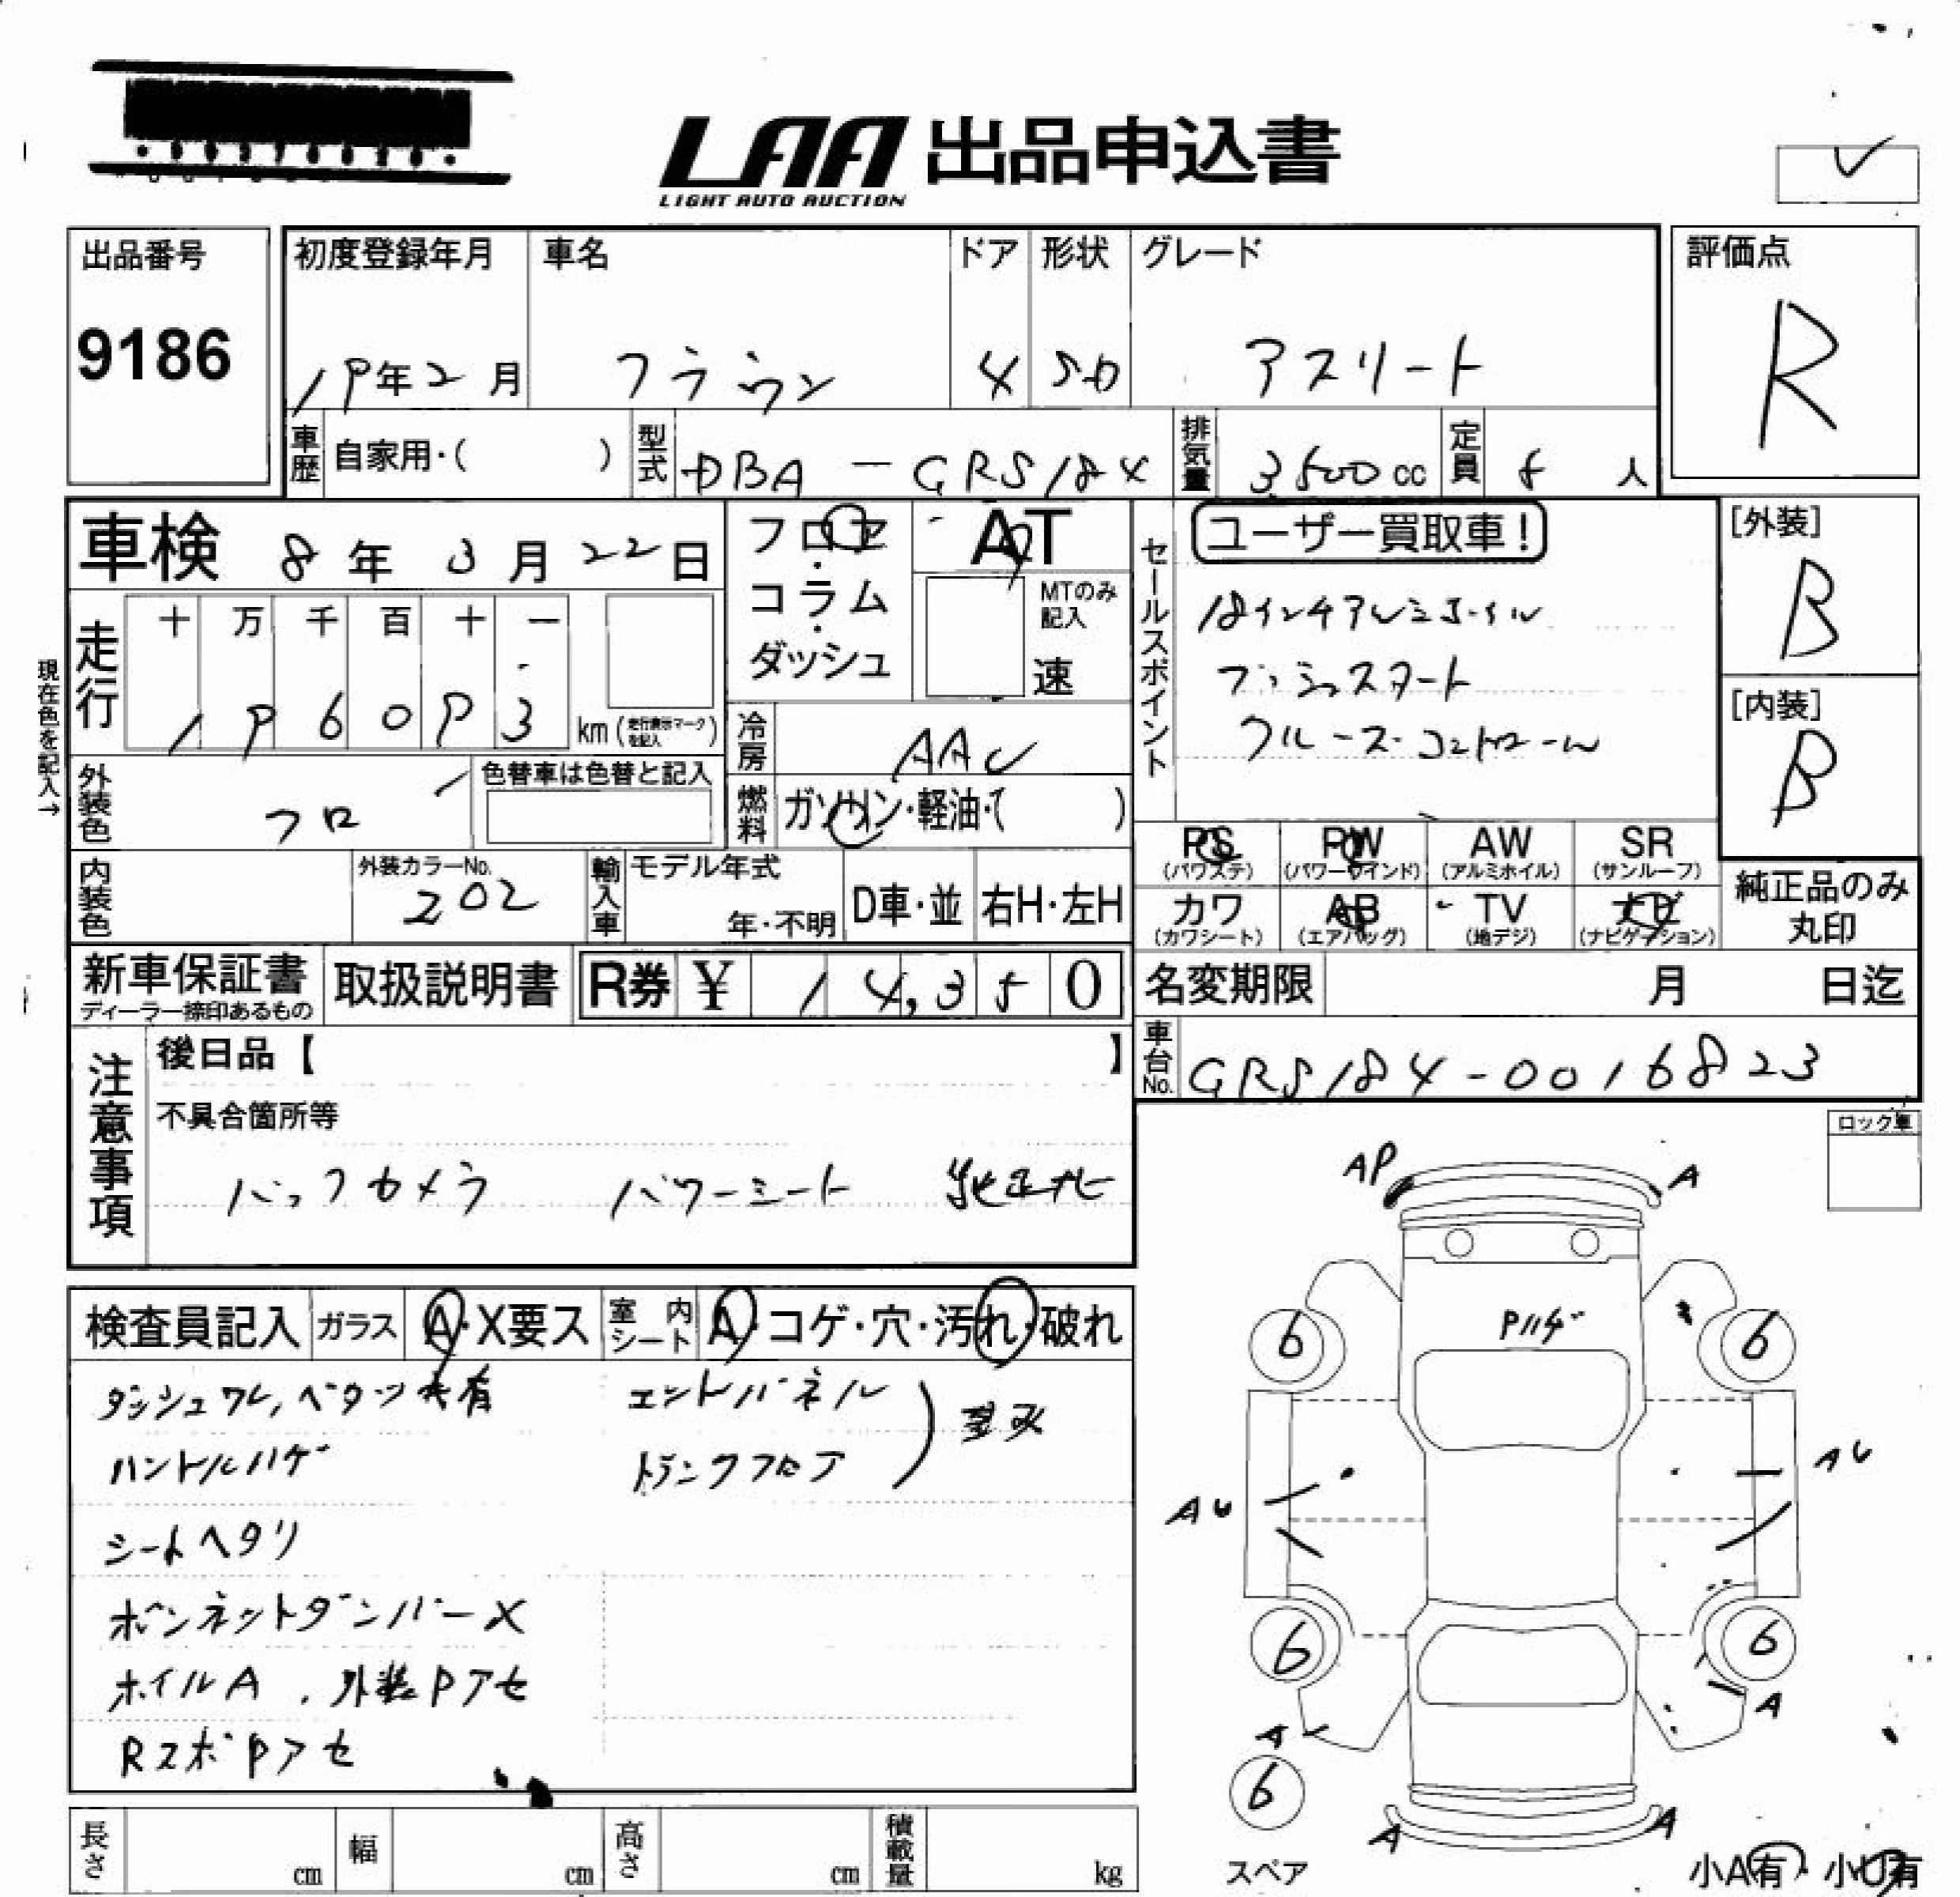 LAA 出品申込書
LIGHT AUTO AUCTION
出品番号
9186
初度登録年月
19年2月
車名
クラウン
ドア
4
形状
SD
グレード
アスリート
評価点
R
車歴 自家用・( )
型式 DBA-GRS184
排気量 3500cc
定員 人
車検 8年3月22日
フロア・コラム・ダッシュ
AT
MTのみ記入
速
セールスポイント
ユーザー買取車!
18インチアルミホイル
プッシュスタート
クルーズコントロール
[外装]
B
[内装]
B
現在色を記入→
走行
十 万 千 百 十 一
1 9 6 0 9 3 km(走行表示マークを記入)
冷房 AAC
燃料 ガソリン・軽油・( )
外装色 クロ
色替車は色替と記入
内装色
外装カラーNo.
202
輸入車
モデル年式
年・不明
D車・並
右H・左H
PS (パワステ)
PW (パワーウインド)
AW (アルミホイル)
SR (サンルーフ)
カワ (カワシート)
AB (エアバッグ)
TV (地デジ)
ナビ (ナビゲーション)
純正品のみ丸印
新車保証書
ディーラー捺印あるもの
取扱説明書
R券 ¥ 14,350
名変期限 月 日迄
車台No. GRS184-0016823
注意事項
後日品【 】
不具合箇所等
バックカメラ パワーシート 純正ナビ
ロック車
検査員記入
ガラス A・X要ス
室内シート A・コゲ・穴・汚れ・破れ
ダッシュワレ,ベタツキ有
ハンドルハゲ
シートヘタリ
ボンネットダンパーX
ホイルA、外装Pアセ
RスポPアセ
エンドパネル
トランクフロア
AP
A
Pハゲ
6
6
AU
AU
6
6
A
A
6
スペア
A
A
小A有・小U有
長さ cm
幅 cm
高さ cm
積載量 kg